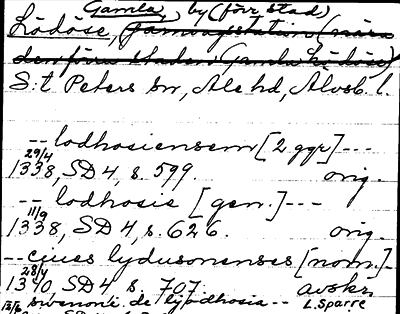 Gamla, by (förr stad)
Lödöse, järnvägsstation (nära
den förra staden Gamla Lödöse)
S:t Peters sn, Ale hd, Älvsb. l.
-- lodhosiensem [2 ggr] ---
29/4
1338, SD 4, s. 599. orig.
-- lodhosie [gen.] ---
11/9
1338, SD 4, s. 626. orig.
-- ciues lydusonenses [nom.] -
28/4
1340, SD 4 s. 707. avskr.
swenoni de lyodhosia -- L. Sparre